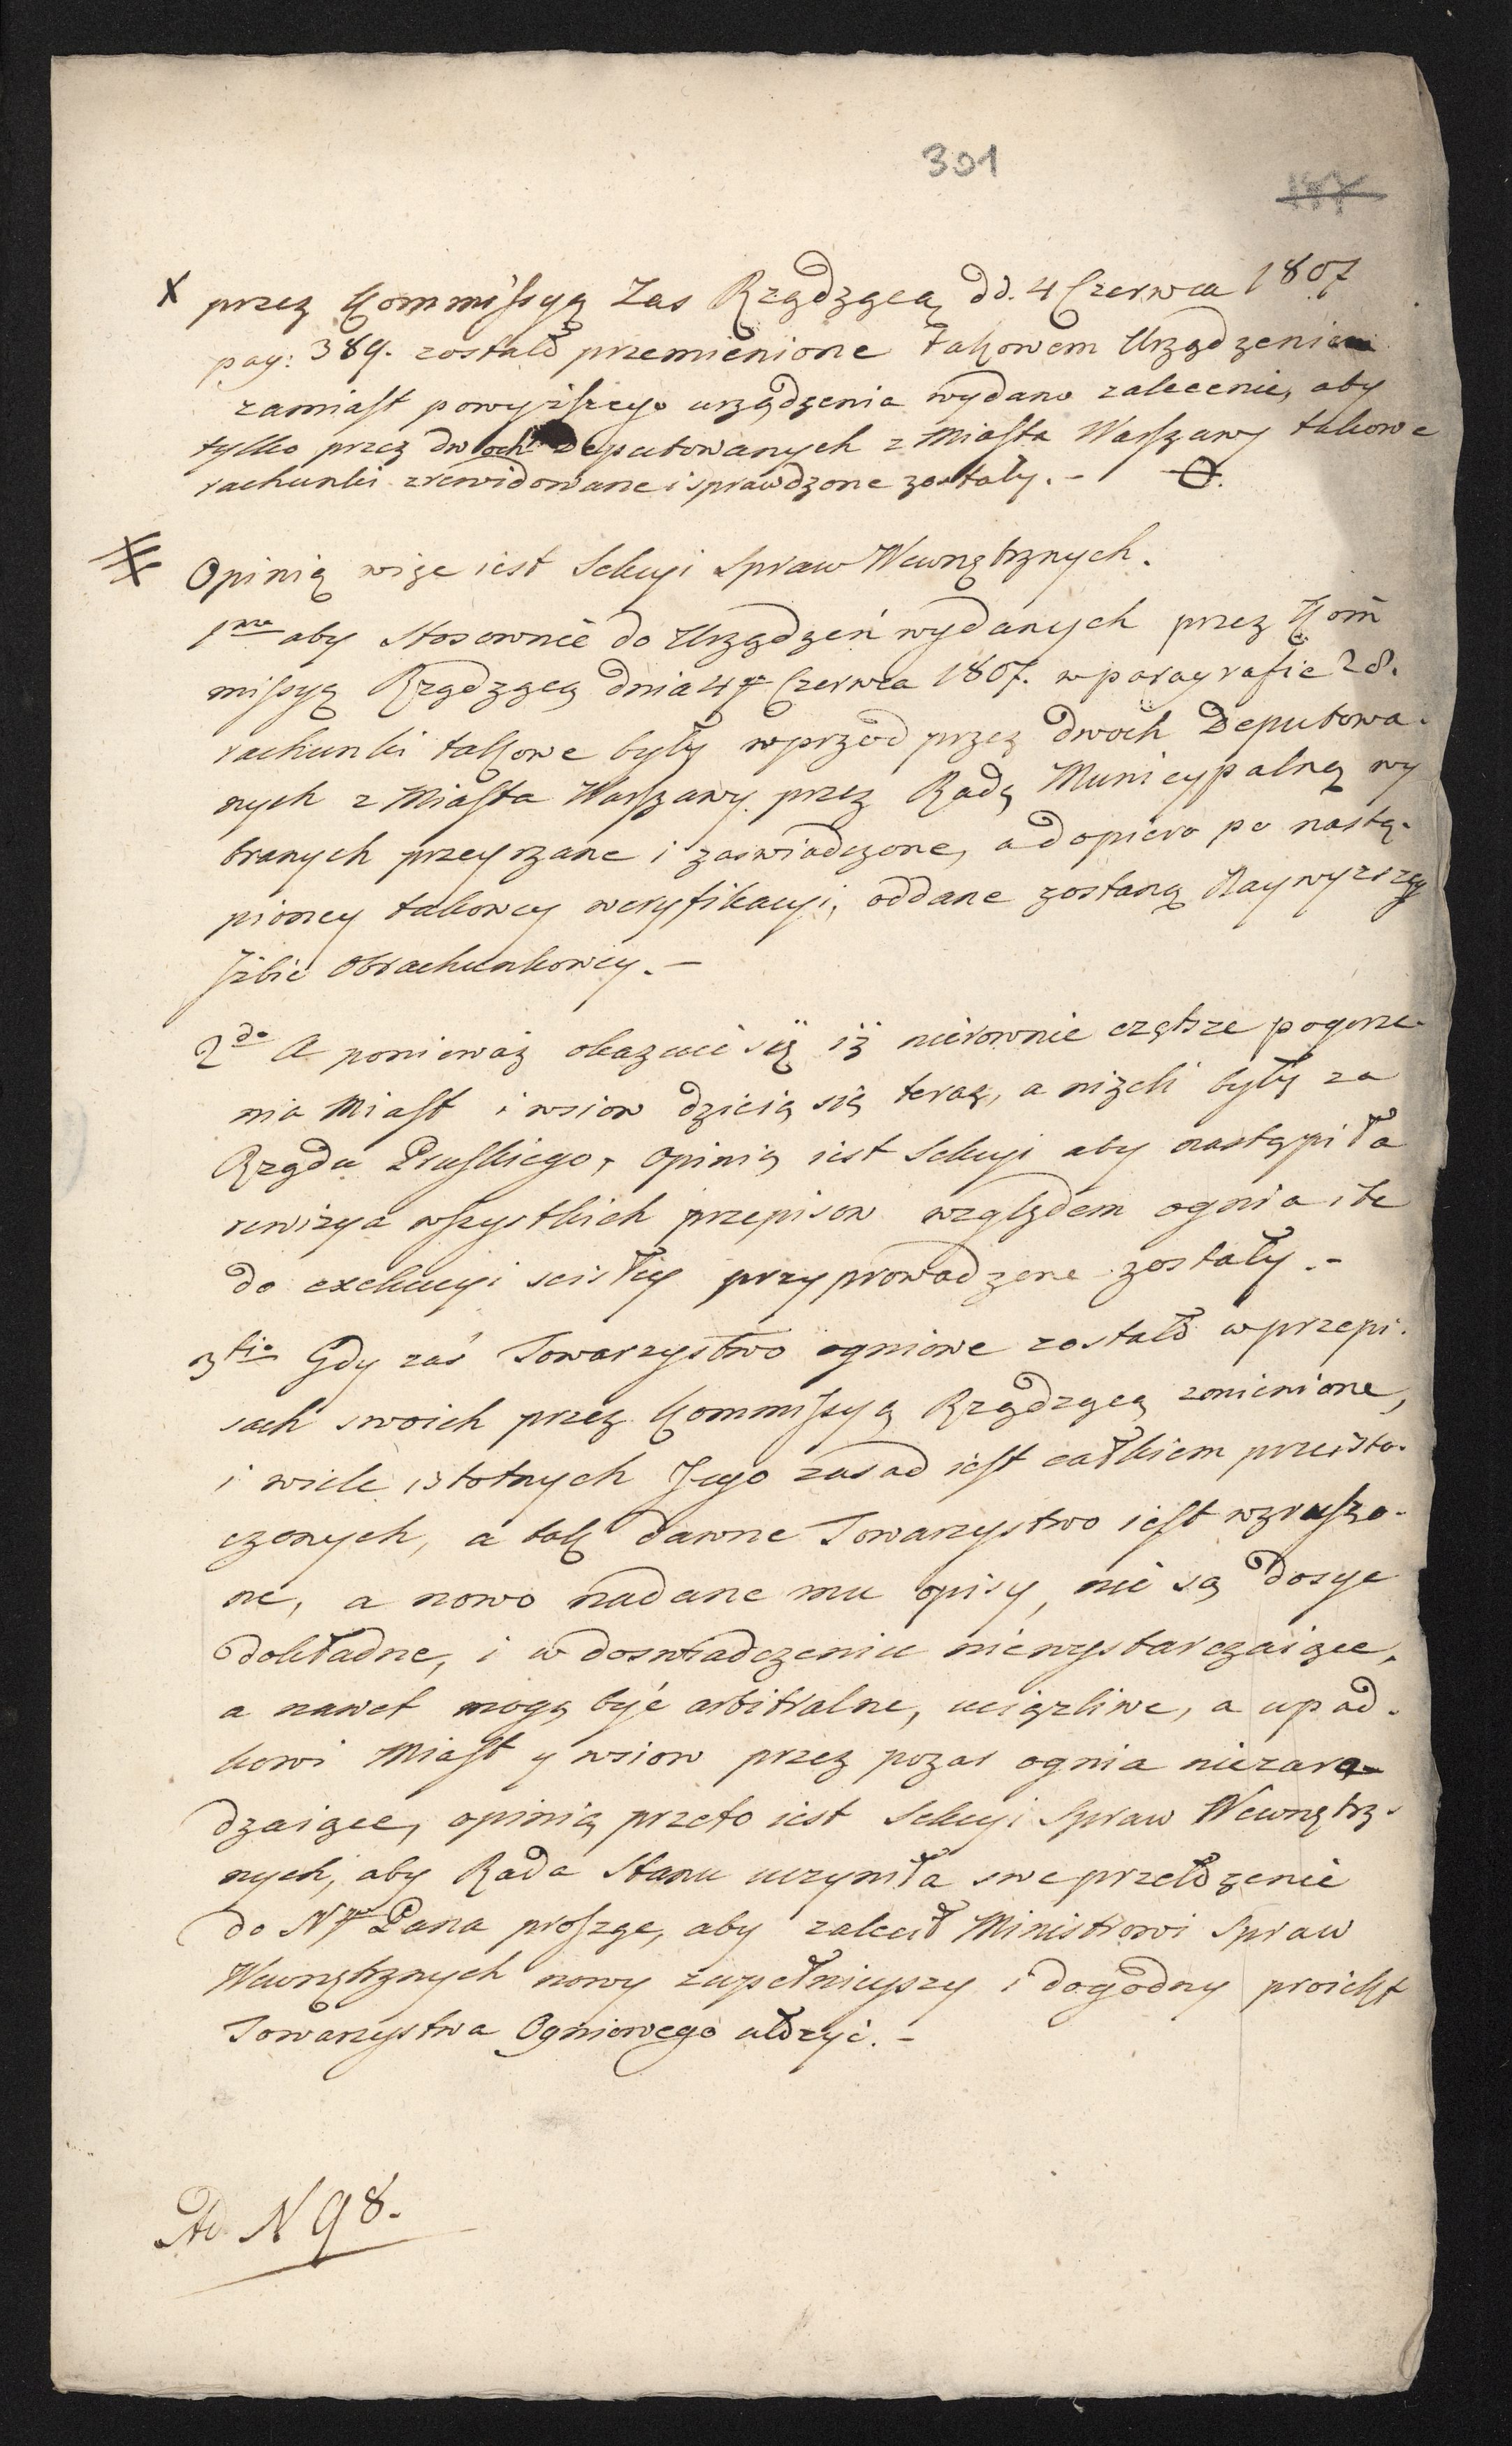 301
177
X przez Kommissyą Zas Rządzącą dd. 4 Czerwca 1807
pag: 389. zostało przemienione takowem Urządzeniem
zamiast powyższego urządzenia wydano zalecenie, aby
tylko przez dwoch Deputowanych z Miasta Warszawy takowe
rachunki zrewidowane i sprawdzone zostały. -
Opinią więc iest Sekcyi Spraw Wewnętrznych.
1mo aby Stosownie do Urządzeń wydanych przez Kom̄
missyą Rządzącą dnia 4go Czerwca 1807. w paragrafie 28.
rachunki takowe były wprzód przez dwoch Deputowa-
nych z Miasta Warszawy przez Radę Municypalną wy
branych przeyrzane i zaswiadczone, a dopiero po nastą-
pioney takowey weryfikacyi, oddane zostaną Naywyzszey
Jzbie Obrachunkowey. -
2do A poniewaz okazuie się iż nierownie częstsze pogorze-
nia Miast i wsiow dzieią się teraz, a niżeli były za
Rządu Pruskiego, Opinią iest Sekcyi aby nastąpiła
rewizya wszystkich przepisow względem ognia i te
do exekucyi scisłey przyprowadzone zostały. -
3tio Gdy zaś Towarzystwo ogniowe zostało w przepi-
sach swoich przez Kommissyą Rządzącą zmienione,
i wiele istotnych Jego zasad iest całkiem przeisto-
czonych, a tak dawne Towarzystwo iest wzruszo-
ne, a nowo nadane mu opisy, nie są dosyć
dokładne, i w doswiadczeniu niewystarczaiące,
a nawet mogą być arbitralne, uciązliwe, a upad-
kowi Miast y wsiow przez pozar ognia niezara-
dzaiące, opinią przeto iest Sekcyi Spraw Wewnętrz-
nych, aby Rada Stanu uczyniła swe przełożenie
do Ngo Pana prosząc, aby zalecił Ministrowi Spraw
Wewnętrznych nowy zupełnieyszy i dogodny proiekt
Towarzystwa Ogniowego ułożyć. -
Ad N 98.